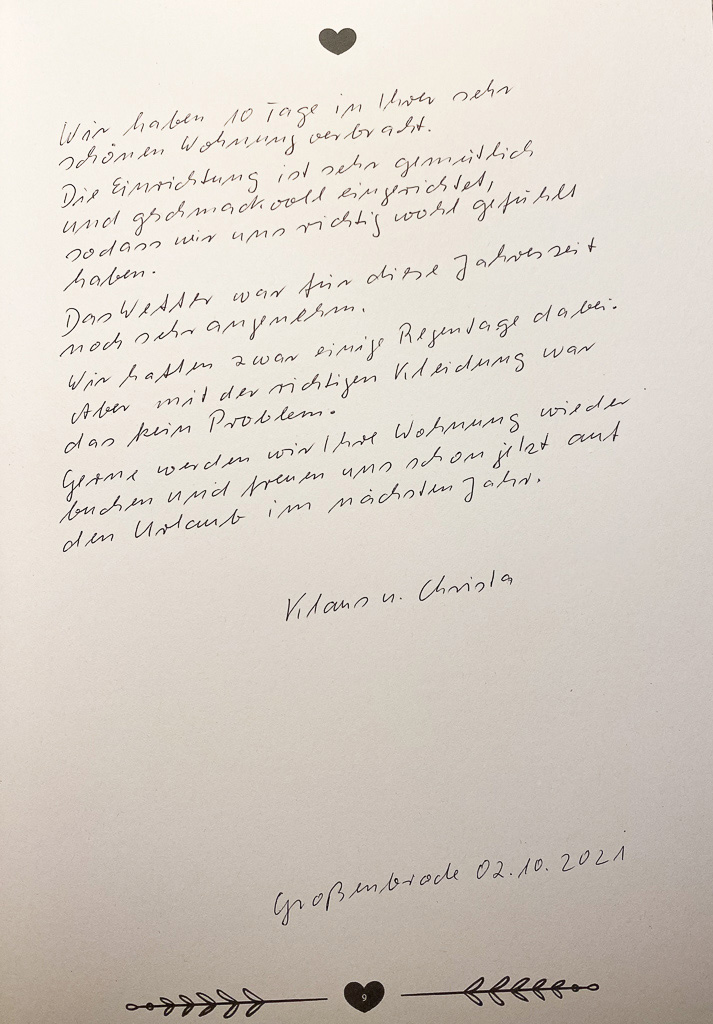 Wir haben 10 Tage in Ihrer sehr
schönen Wohnung verbracht.
Die Einrichtung ist sehr gemütlich
und geschmackvoll eingerichtet,
sodass wir uns richtig wohl gefühlt
haben.
Das Wetter war für diese Jahreszeit
noch sehr angenehm.
Wir hatten zwar einige Regentage dabei.
Aber mit der richtigen Kleidung war
das kein Problem.
Gerne werden wir Ihre Wohnung wieder
buchen und freuen uns schon jetzt auf
den Urlaub im nächsten Jahr.
Klaus u. Christa
Großenbrode 02.10.2021
9